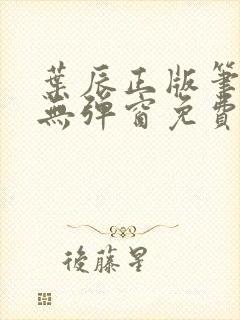 葉辰正版筆
無彈窗免費
後藤星